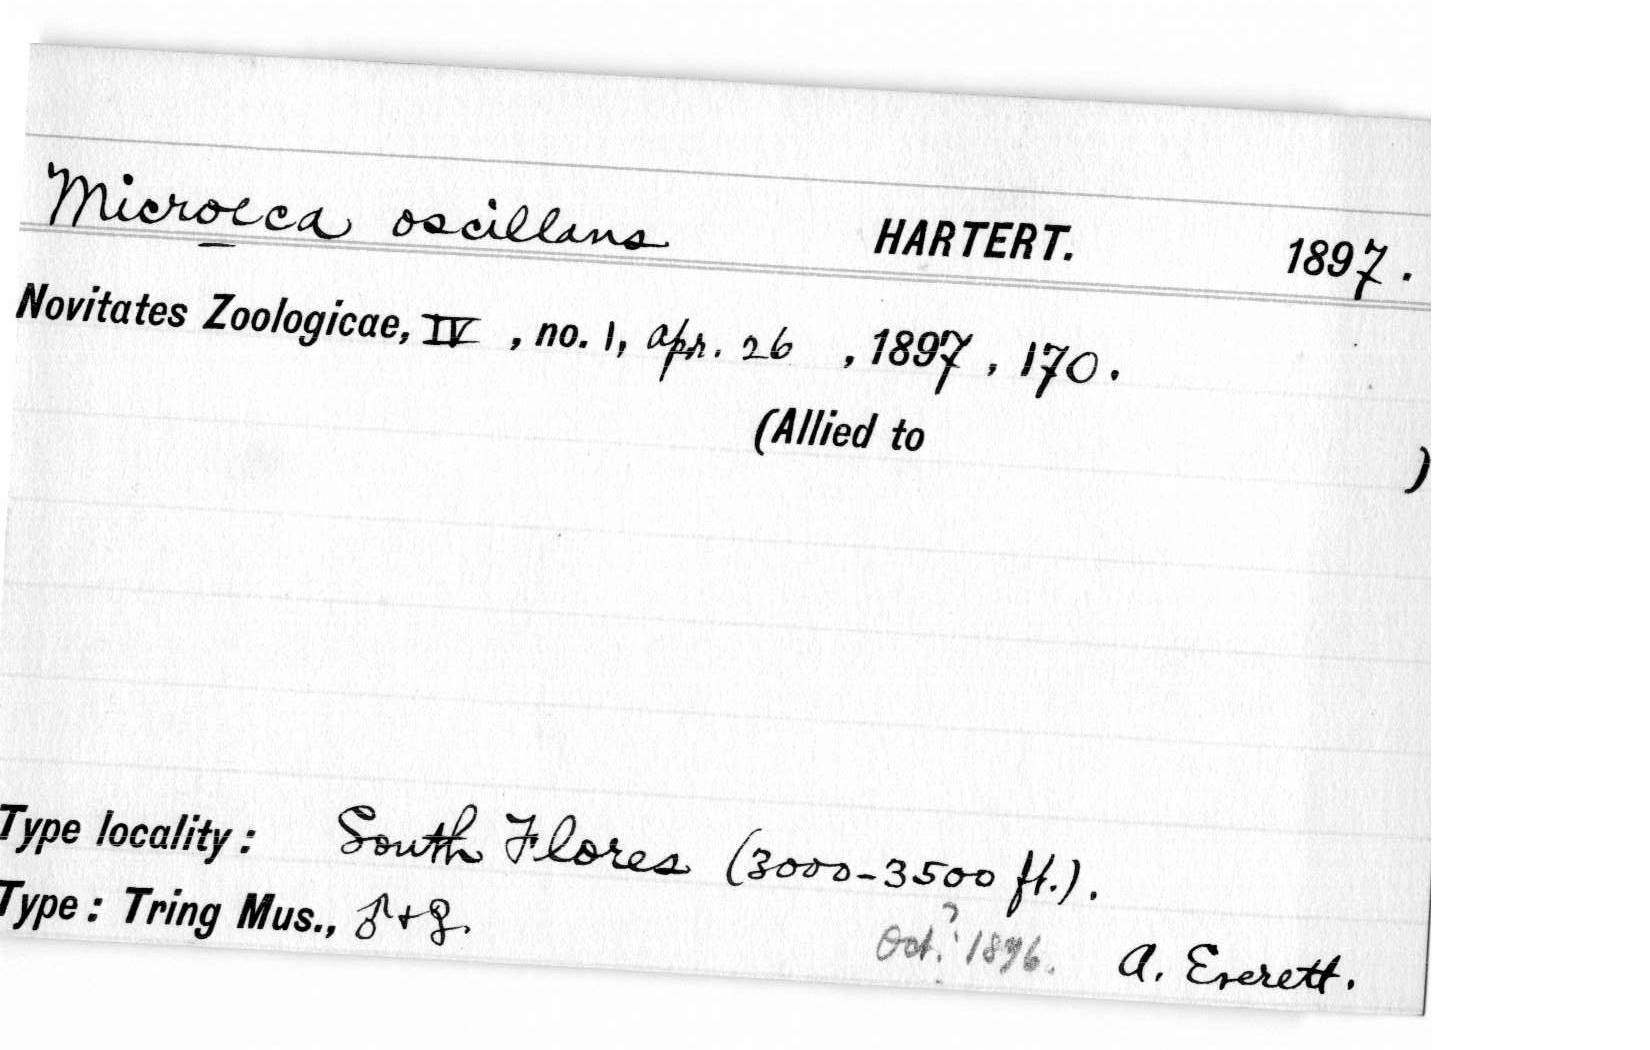 Microeca oscillans HARTERT. 1897.
Novitates Zoologicae, IV, no. 1, Apr. 26, 1897, 170.
(Allied to )
Type locality: South Flores (3000-3500 ft.).
Type: Tring Mus., ♂+♀. Oct.? 1896. A. Everett.